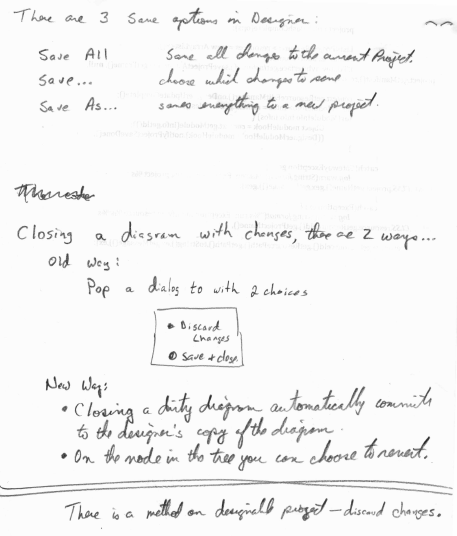 There are 3 Save options in Designer:
Save All save all changes to the current Project.
Save... choose which changes to save
Save As... saves everything to a new project.
Closing a diagram with changes, there are 2 ways...
Old Way:
Pop a dialog to with 2 choices
• Discard
Changes
• Save + close
New Way:
• Closing a dirty diagram automatically commits
to the designer's copy of the diagram.
• On the node in the tree you can choose to revert.
There is a method on designable project – discard changes.